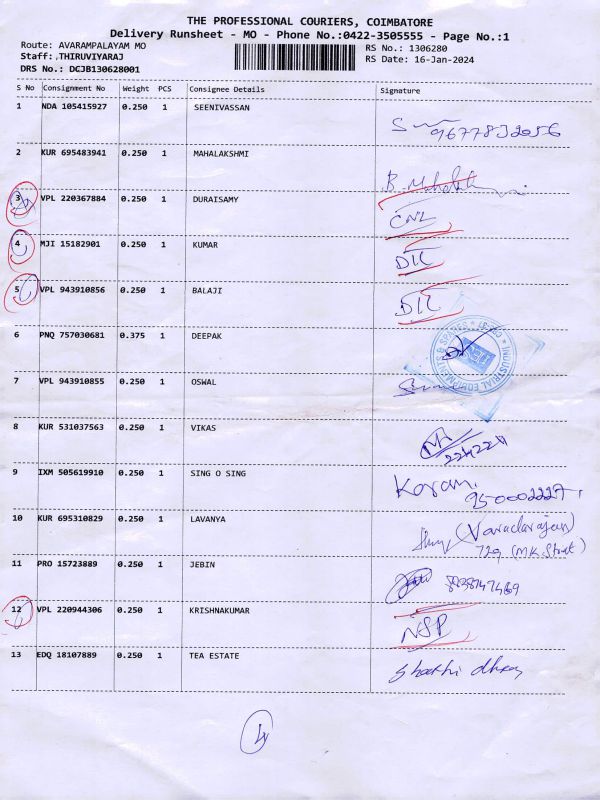 THE PROFESSIONAL COURIERS, COIMBATORE
Delivery Runsheet - MO - Phone No.:0422-3505555 - Page No.:1
Route: AVARAMPALAYAM MO
Staff: THIRUVIYARAJ
DRS No.: DCJB130628001
RS No.: 1306280
RS Date: 16-Jan-2024
S No Consignment No Weight PCS Consignee Details Signature
1 NDA 105415927 0.250 1 SEENIVASSAN
2 KUR 695483941 0.250 1 MAHALAKSHMI
3 VPL 220367884 0.250 1 DURAISAMY CNL
4 MJI 15182901 0.250 1 KUMAR DIL
5 VPL 943910856 0.250 1 BALAJI DIL
6 PNQ 757030681 0.375 1 DEEPAK
INDUSTRIAL EQUIPMENTS & SPARES
7 VPL 943910855 0.250 1 OSWAL
8 KUR 531037563 0.250 1 VIKAS
9 IXM 505619910 0.250 1 SING O SING Karan.
10 KUR 695310829 0.250 1 LAVANYA (Varadarajan)
729 (M.K. Street)
11 PRO 15723889 0.250 1 JEBIN
12 VPL 220944306 0.250 1 KRISHNAKUMAR NSP
13 EDQ 18107889 0.250 1 TEA ESTATE